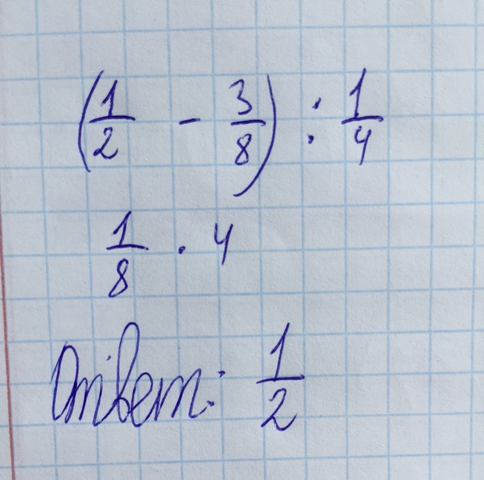 (1/2 - 3/8) : 1/4
1/8 · 4
Ответ: 1/2